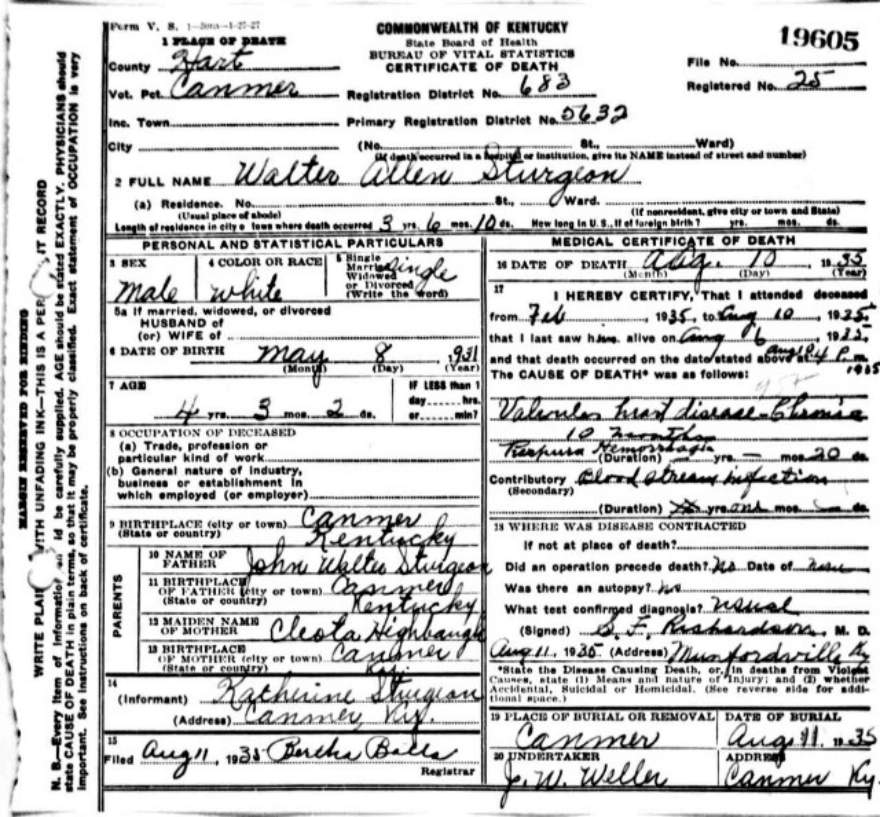 Form V. S. 1-50m-1-27-27
COMMONWEALTH OF KENTUCKY
State Board of Health
BUREAU OF VITAL STATISTICS
CERTIFICATE OF DEATH
19605
File No.
Registered No. 25
1 PLACE OF DEATH
County Hart
Vot. Pct. Canmer
Registration District No. 683
Inc. Town
Primary Registration District No. 5632
City (No. St., Ward)
(If death occurred in a hospital or institution, give its NAME instead of street and number)
2 FULL NAME Walter Allen Sturgeon
(a) Residence. No. St., Ward.
(Usual place of abode) (If nonresident, give city or town and State)
Length of residence in city o town where death occurred 3 yrs. 6 mos. 10 ds. How long in U.S., if of foreign birth? yrs. mos. ds.
PERSONAL AND STATISTICAL PARTICULARS
3 SEX Male
4 COLOR OR RACE white
5 Single Married Widowed or Divorced (Write the word) single
5a If married, widowed, or divorced
HUSBAND of
(or) WIFE of
6 DATE OF BIRTH May 8 , 931
(Month) (Day) (Year)
7 AGE
4 yrs. 3 mos. 2 ds.
IF LESS than 1
day hrs.
or min?
8 OCCUPATION OF DECEASED
(a) Trade, profession or
particular kind of work
(b) General nature of industry,
business or establishment in
which employed (or employer)
9 BIRTHPLACE (city or town) Canmer
(State or country) Kentucky
PARENTS
10 NAME OF
FATHER John Walter Sturgeon
11 BIRTHPLACE
OF FATHER (city or town) Canmer
(State or country) Kentucky
12 MAIDEN NAME
OF MOTHER Cleota Highbaugh
13 BIRTHPLACE
OF MOTHER (city or town) Canmer
(State or country) Ky.
14
(Informant) Katherine Sturgeon
(Address) Canmer, Ky.
15
Filed Aug 11, 1935 Bertha Balls
Registrar
MEDICAL CERTIFICATE OF DEATH
16 DATE OF DEATH Aug. 10 1935
(Month) (Day) (Year)
17
I HEREBY CERTIFY, That I attended deceased
from Feb , 1935, to Aug 10 , 1935
that I last saw him alive on Aug 6 , 1935,
and that death occurred on the date stated above at Aug 10 4 P. m.
1935
The CAUSE OF DEATH* was as follows:
Valvular heart disease - Chronic
10 months
Purpura Hemorrhagia
(Duration) yrs. mos. 20 ds.
Contributory Blood stream infection
(Secondary)
(Duration) yrs. one mos. ds.
18 WHERE WAS DISEASE CONTRACTED
If not at place of death?
Did an operation precede death? No Date of none
Was there an autopsy? No
What test confirmed diagnosis? usual
(Signed) S. F. Richardson, M. D.
Aug 11, 1935 (Address) Munfordville Ky
*State the Disease Causing Death, or, in deaths from Violent
Causes, state (1) Means and nature of Injury; and (2) whether
Accidental, Suicidal or Homicidal. (See reverse side for addi-
tional space.)
19 PLACE OF BURIAL OR REMOVAL Canmer
DATE OF BURIAL Aug 11. 1935
20 UNDERTAKER J. W. Weller
ADDRESS Canmer Ky.
MARGIN RESERVED FOR BINDING
WRITE PLAIN WITH UNFADING INK—THIS IS A PER IT RECORD
N. B.—Every item of information ld be carefully supplied. AGE should be stated EXACTLY. PHYSICIANS should
state CAUSE OF DEATH in plain terms, so that it may be properly classified. Exact statement of OCCUPATION is very
important. See instructions on back of certificate.